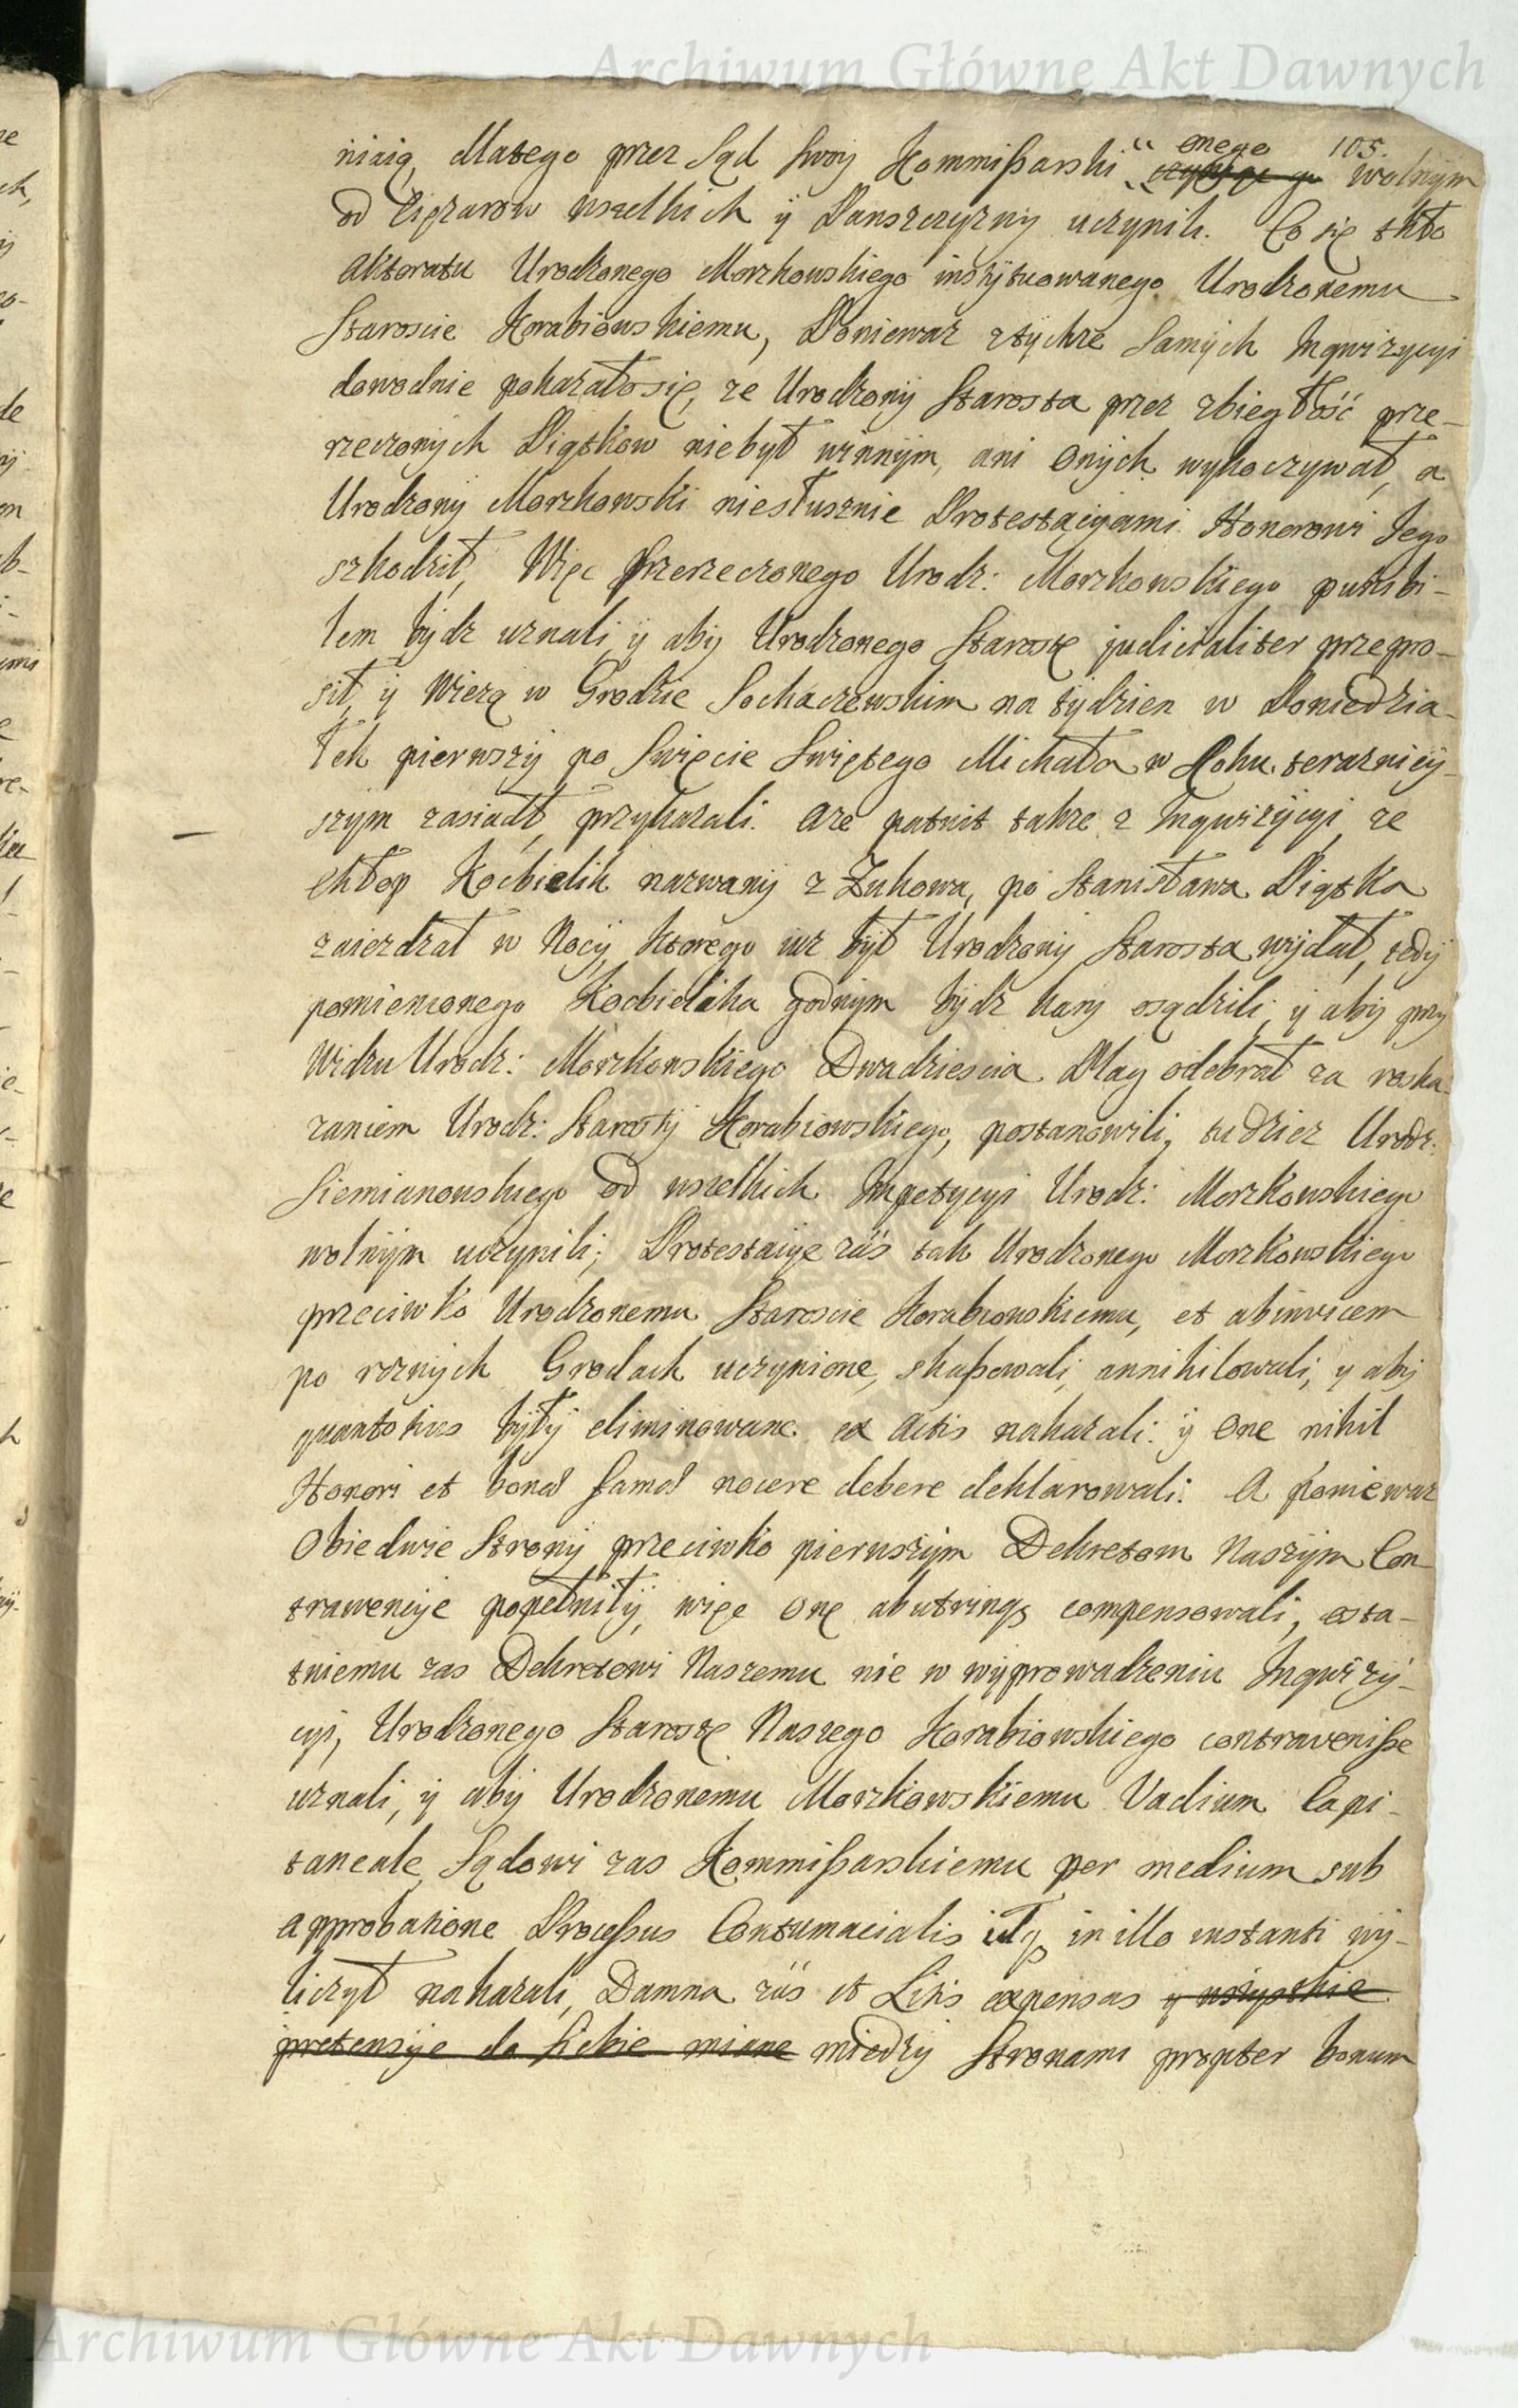 Archiwum Główne Akt Dawnych
105.
niaią, dlatego przez Sąd swoy Kommißarski " onego wolnym
od Ciężarow wszelkich ÿ Panszczyzny uczynili. Co się tkto
Aktoratu Urodzonego Morzkowskiego instÿtuowanego Urodzonemu
Staroscie Korabiowskiemu, Poniewaz ztÿchze Samÿch Inqwizycyi
dowodnie pokazałosię, ze Urodzonÿ Starosta przez zbiegłość prze-
rzeczonÿch Piątkow niebył winnÿm, ani Onÿch wykoczywał, a
Urodzonÿ Morzkowski niesłusznie Protestacÿami Honorowi Jego
szkodził, Więc Przerzeczonego Urodz: Morzkowskiego punibi-
lem bÿdz uznali ÿ abÿ Urodzonego Starostę judicialiter przepro-
sił, ÿ Wiezą w Grodzie Sochaczewskim na tÿdzien w Poniedzia-
łek pierwszÿ po Swięcie Swiętego Michała w Roku teraznieÿ-
szÿm zasiadł, przykazali. Aze patuit takze z Inqwizÿcÿi, ze
chłop Kocbielik nazwanÿ z Zukowa, po Stanisława Piątka
zaiezdzał w Nocÿ, ktorego iuz bÿł Urodzonÿ Starosta wÿdał, tedÿ
pomienionego Kocbielika godnÿm bÿdz karÿ osądzili, ÿ abÿ przy
Widzu Urodz: Morzkowskiego Dwadziescia Plag odebrał za roska-
zaniem Urodz: Starostÿ Korabiowskiego, postanowili, tudziez Urodz:
Siemianowskiego od wszelkich Impetycyi Urodz: Morzkowskiego
wolnÿm uczynili; Protestacÿe zas tak Urodzonego Morzkowskiego
przeciwko Urodzonemu Staroscie Korabiowskiemu, et abinvicem
po roznÿch Grodach uczynione, skaßowali, annihilowali, ÿ abÿ
quantotius bÿłÿ eliminowane ex Actis nakazali: ÿ One nihil
Honori et bonæ famæ nocere debere deklarowali: A poniewaz
Obiedwie Stronÿ przeciwko pierwszÿm Dekretom Naszÿm Con-
trawencÿe popełniłÿ, więc One abutrinqs compensowali, osta-
tniemu zas Dekretowi Naszemu nie w wÿprowadzeniu Inqwizÿ-
cÿi, Urodzonego Starostę Naszego Korabiowskiego contraveniße
uznali, ÿ abÿ Urodzonemu Morzkowskiemu Vadium Capi-
taneale, Sądowi zas Kommißarskiemu per medium sub
approbatione Proceßus Contumacialis in illo instanti wÿ-
liczył nakazali, Damna zas et Litis expensas ÿ wszystkie
pretensÿe do siebie miane miedzÿ Stronami propter bonum
Archiwum Główne Akt Dawnych